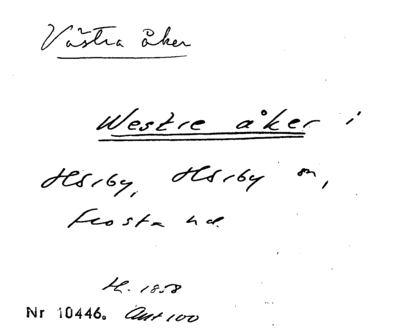 Västra åker
Westre åker i
Hörby, Hörby sn,
Frosta hd.
H. 1858
Nr 10446. Avt 100